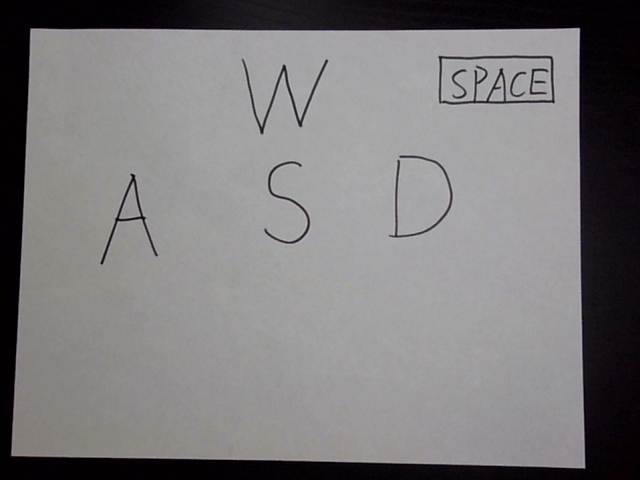 W
SPACE
A S D